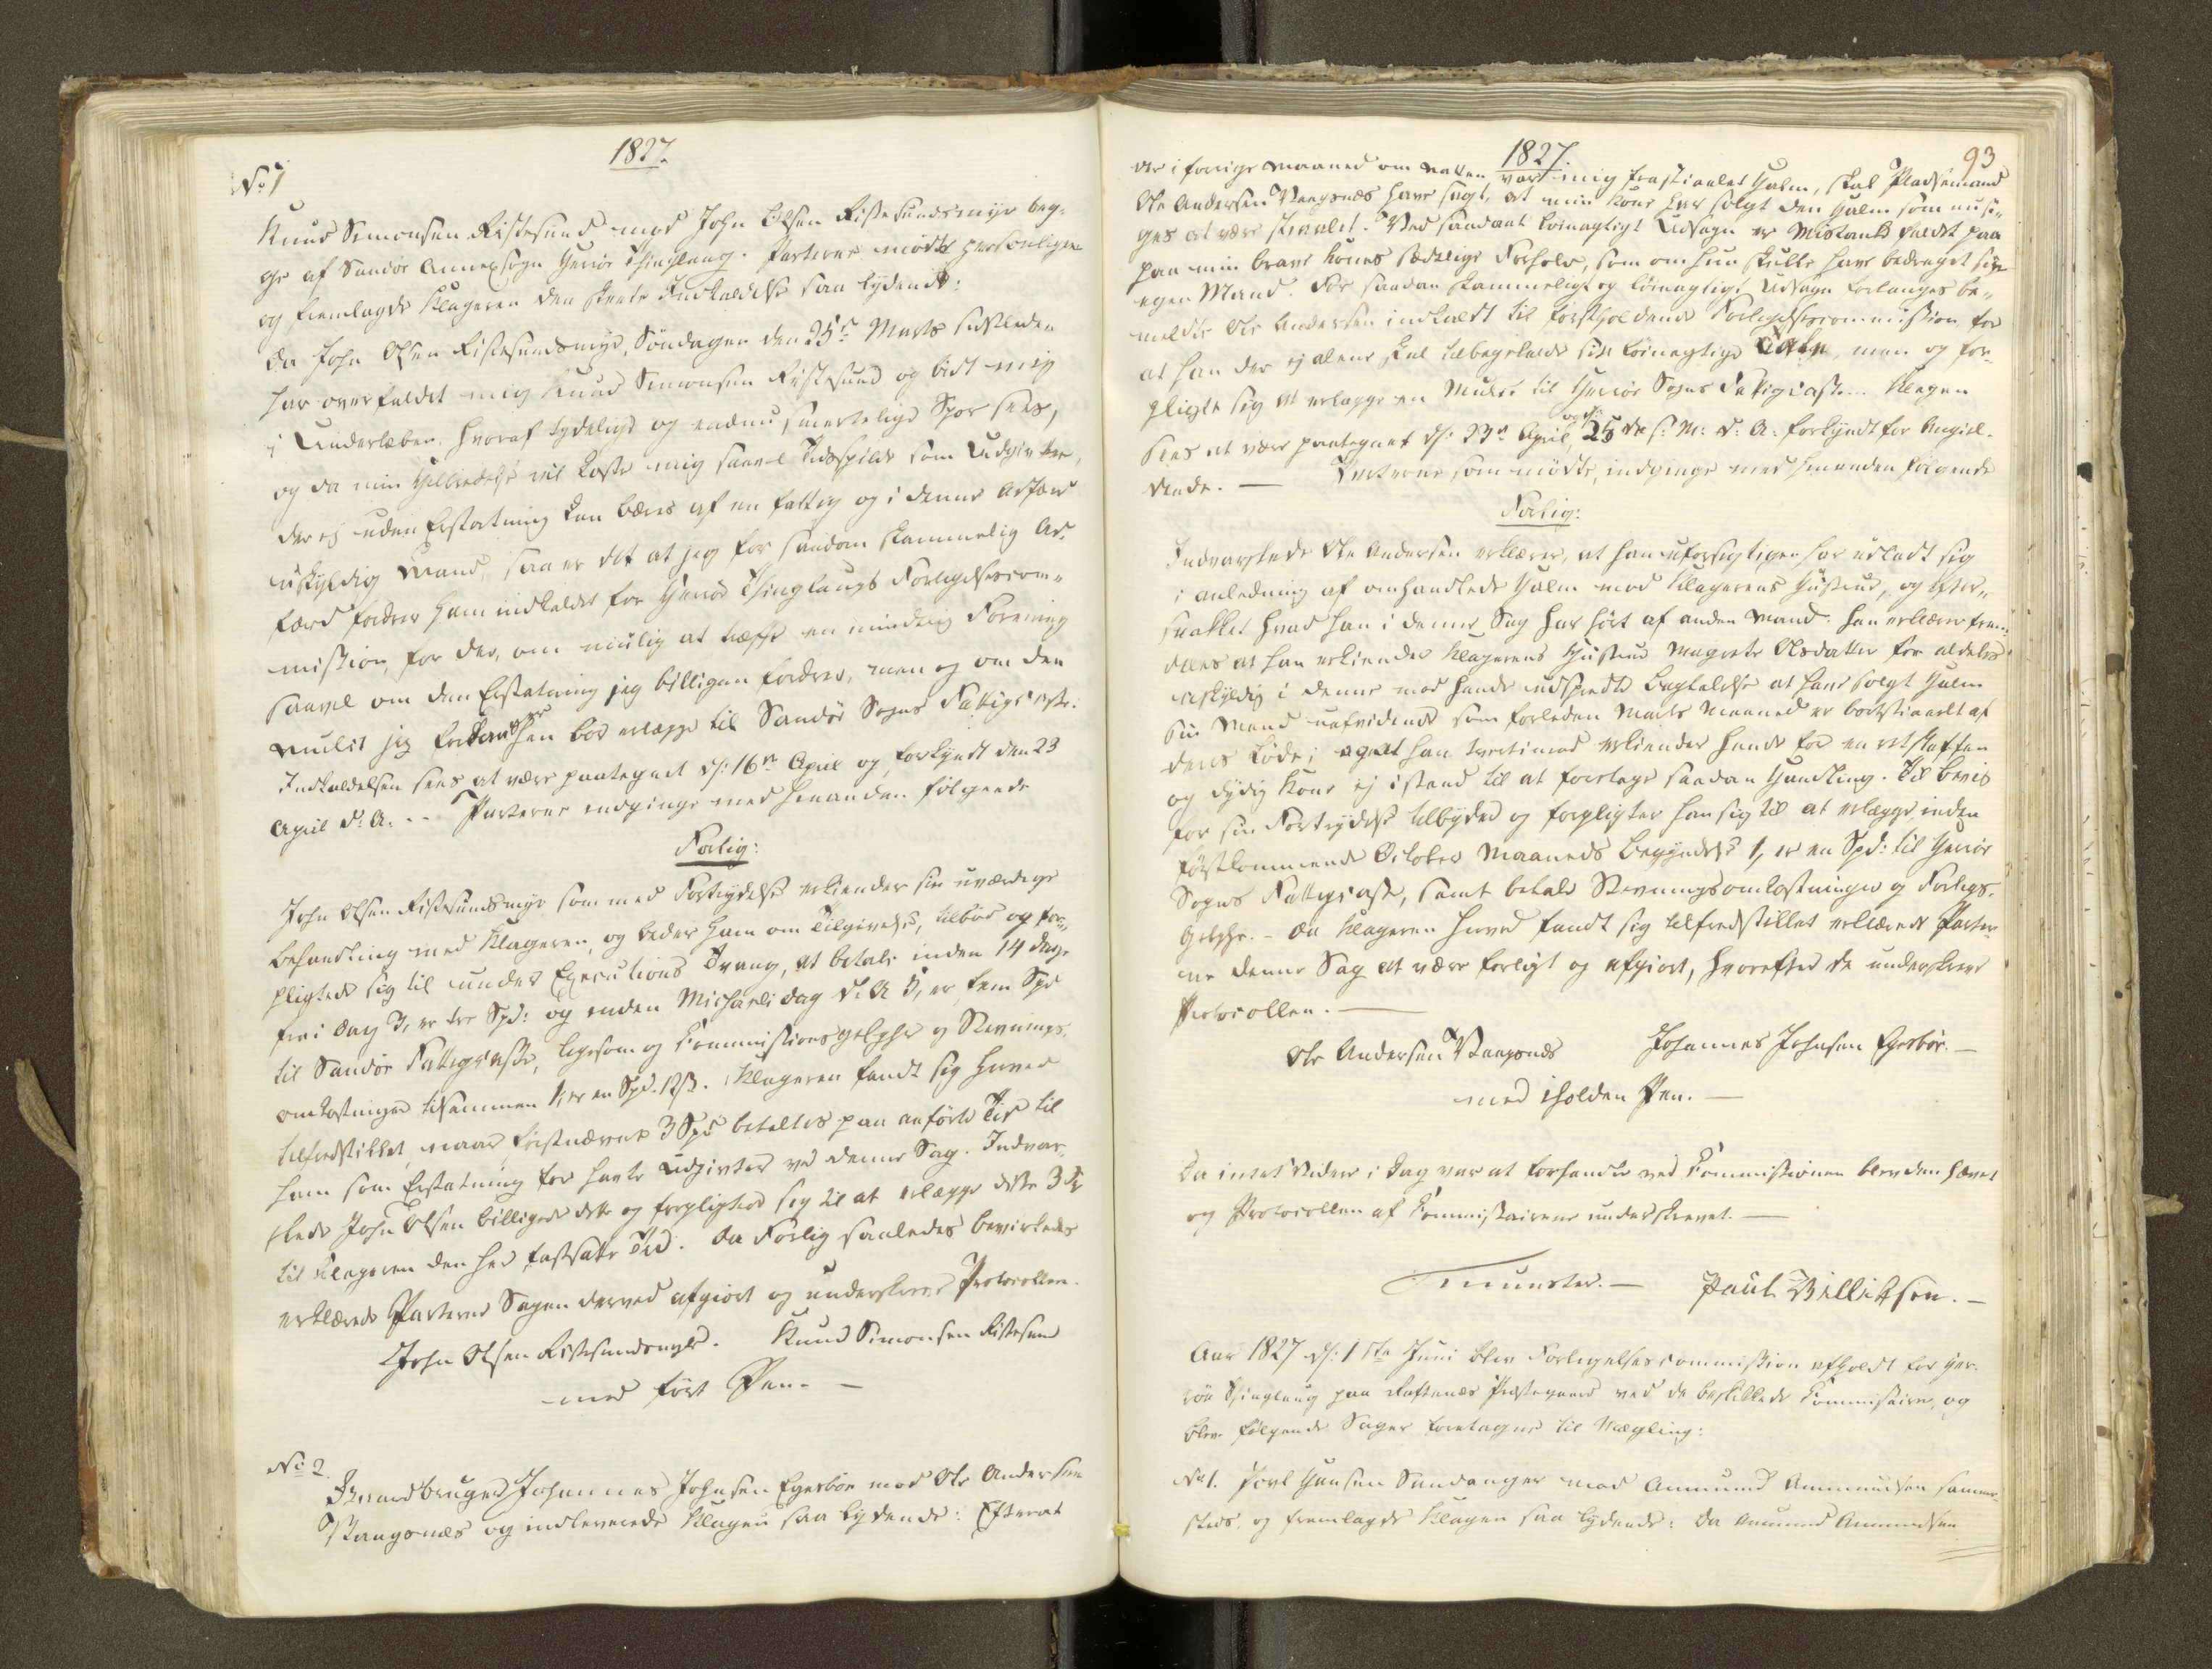 1827.
No 1
Knud Simonsen Ristesund mod John Olsen Ristesundsmyr beg-
ge af Sandøe Annexsogn Herrøe Thinglaug. Parterne mødte personligen
og fremlagde Klageren den skrevne Indkaldelse saa lydende:
Da John Olsen Ristesundsmyr, Søndagen den 25de Marts sidstleden
har overfaldet mig Knud Simonsen Ristesund og bidt mig
i Underlæben, hvoraf tydelige og endnu smertelige Spor sees,
og da min Helbredelse vil koste mig saavel Tidsspilde som Udgivter,
der ej uden Erstatning kan bæres af en fattig og i denne Adfærd
uskyldig Mand, saa er det at jeg for saadan skammelig Ad-
færd fordrer ham indkaldet for Herrøe Thinglaugs Forligelsescom-
mission, for der, om muligt at træffe en mindelig Forening
saavel om den Erstatning jeg billigen fordrer, men og om den
Mulct jeg fordrer han bør erlægge til Sandøe Sogns Fattigcasse.
Indkaldelsen sees at være paategnet d: 16de April og forkyndt den 23
April d: A: -- Parterne indginge med hinanden følgende
Forlig:
John Olsen Ristesundsmyr som med Fortrydelse erkiender sin uværdige
Behandling med Klageren, og beder ham om Tilgivelse, tilbød og for-
pligtede sig til under Executions Tvang, at betale inden 14 dage
fra i Dag 3, er tre Spd: og inden Michaeli dag d: A 5, er fem Spd
til Sandøe Fattigcasse, ligesom og Commissionsgebyhr og Stevnings-
omkostninger tilsammen 1, er en Spd. 12ß. Klageren fandt sig herved
tilfredstillet, naar førstnævnte 3 Spd betaltes paa anførte Tid til
ham som Erstatning for havte Udgivter ved denne Sag. Indvar-
slede John Olsen billigede dette og forpligtede sig til at erlægge disse 3 d
til Klageren den her fastsatte Tid. Da Forlig saaledes bevirkedes
erklærede Parterne Sagen derved afgiort og underskrev Protocollen.
John Olsen Ristesundsmyr. Knud Simonsen Ristesund
med ført Pen. —
No 2.
Gaardbruger Johannes Johnsen Egesbøe mod Ole Andersen
Vaagsnæs og indleverede Klagen saa lydende: Efterat
1827.
93
der i forrige Maaned om Natten var mig frastiaalet Halm, skal Pladsemand
Ole Andersen Vaagsnæs have sagt, at min Kone har solgt den Halm som nu si-
ges at være stiaalet. Ved saadant løgnagtigt Udsagn er Mistanke faldet paa
paa min brave Kones sædelige Forhold, som om hun skulle have bedraget sin
egen Mand. For saadan skammeligt og løgnagtigt Udsagn forlanges be-
meldte Ole Andersen indkaldt til førstholdende Forligelsescommission for
at han der ej alene skal tilbagekalde sin løgnagtige Tale, men og for-
pligte sig at erlægge en Mulct til Herrøe Sogns Fattigcasse. Klagen
sees at være paategnet d: 23de April og d: 25de s: M: d: A: forkyndt for Angiel-
dende. — Parterne som mødte, indginge med hinanden følgende
Forlig:
Indvarslede Ole Andersen erklærer, at han uforsigtigen har udladt sig
i anledning af omhandlede Halm mod Klagerens Hustrue, og efter-
snakket hvad han i denne Sag har hørt af anden Mand. Han erklærer frem-
deles at han erkiender Klagerens Hustrue Magrete Olsdatter for aldeles
uskyldig i denne mod hende udspredte Bagtalelse at have solgt Halm
sin Mand uafvidende som forleden Marts Maaned er bortstiaalet af
deres Løde; og at han tvertimod erkiender hende for en retskaffen
og dydig Kone ej istand til at foretage saadan Handling. Til Beviis
for sin Fortrydelse tilbyder og forpligter han sig til at erlægge inden
førstkommende October Maaneds Begyndelse 1, er en Spd: til Herrøe
Sogns Fattigcasse, samt betale Stevningsomkostninger og Forligs-
Gebyhr. - Da Klageren herved fandt sig tilfredstillet erklærede Parter-
ne denne Sag at være forligt og afgiort, hvorefter de underskrev
Protocollen. —
Ole Andersen Vaagsnæs Johannes Johnsen Egesbøe. —
med iholden Pen. —
Da intet videre i Dag var at forhandle ved Commissionen blev den hævet
og Protocollen af Commissairerne underskrevet. —
Munster. — Paul Billitsøn. —
Aar 1827 d: 1ste Juni blev Forligelsescommission afholdt for Her-
røe Thinglaug paa Præstegaard ved de beskikkede Commissairer, og
blev følgende Sager foretagne til Mægling:
No 1. Povl Hansen Sandanger mod Ammund Ammundsen samme-
steds, og fremlagde Klagen saa lydende: Da Amund Ammundsen